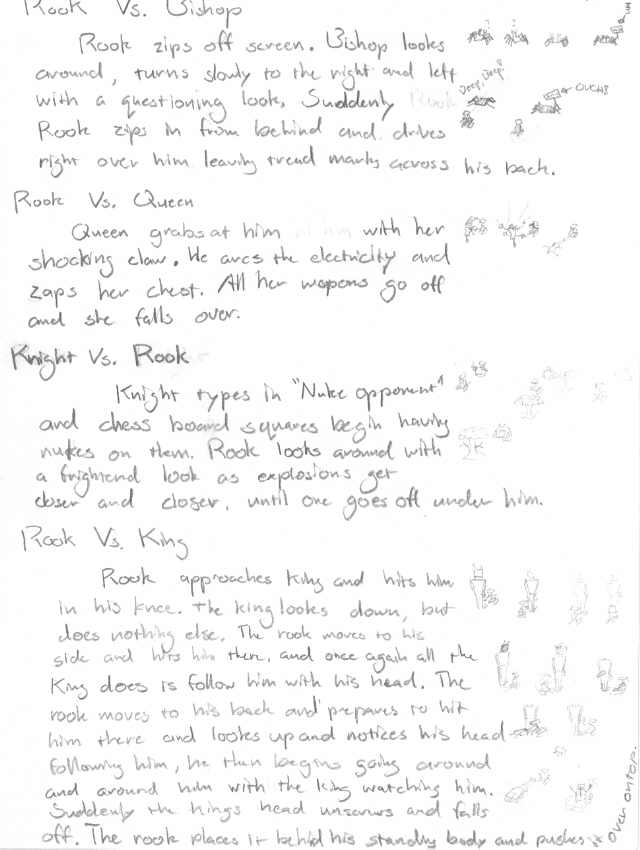 Rook Vs. Bishop
Rook zips off screen. Bishop looks
around, turns slowly to the right and left
with a questioning look. Suddenly Rook
Rook zips in from behind and drives
right over him leaving tread marks across his back.
Beep, Beep!
OUCH!!
Rook Vs. Queen
Queen grabs at him with her
shocking claw. He arcs the electricity and
zaps her chest. All her weapons go off
and she falls over.
Knight Vs. Rook
Knight types in "Nuke opponent"
and chess board squares begin having
nukes on them. Rook looks around with
a frightend look as explosions get
closer and closer, until one goes off under him.
Rook Vs. King
Rook approaches King and hits him
in his knee. The king looks down, but
does nothing else. The rook moves to his
side and hits him there, and once again all the
King does is follow him with his head. The
rook moves to his back and prepares to hit
him there and looks up and notices his head
following him, he then begins going around
and around him with the king watching him.
Suddenly the kings head unscrews and falls
off. The rook places it behind his standing body and pushes it
over on top.